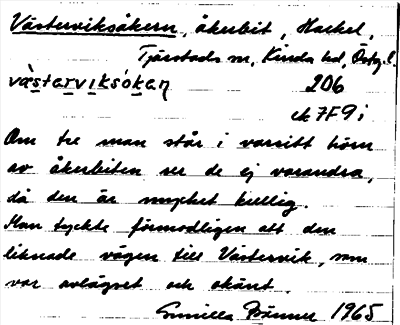 Västerviksåkern, åkerbit, Hackel,
Tjärstads sn, Kinda hd, Östg. l.
västarviksokaṇ 206
ek 7F9i
Om tre man står i varsitt hörn
av åkerbiten ser de ej varandra,
då den är mycket kullig.
Man tyckte förmodligen att den
liknade vägen till Västervik, som
var avlägset och okänt.
Gunilla Brönner 1965